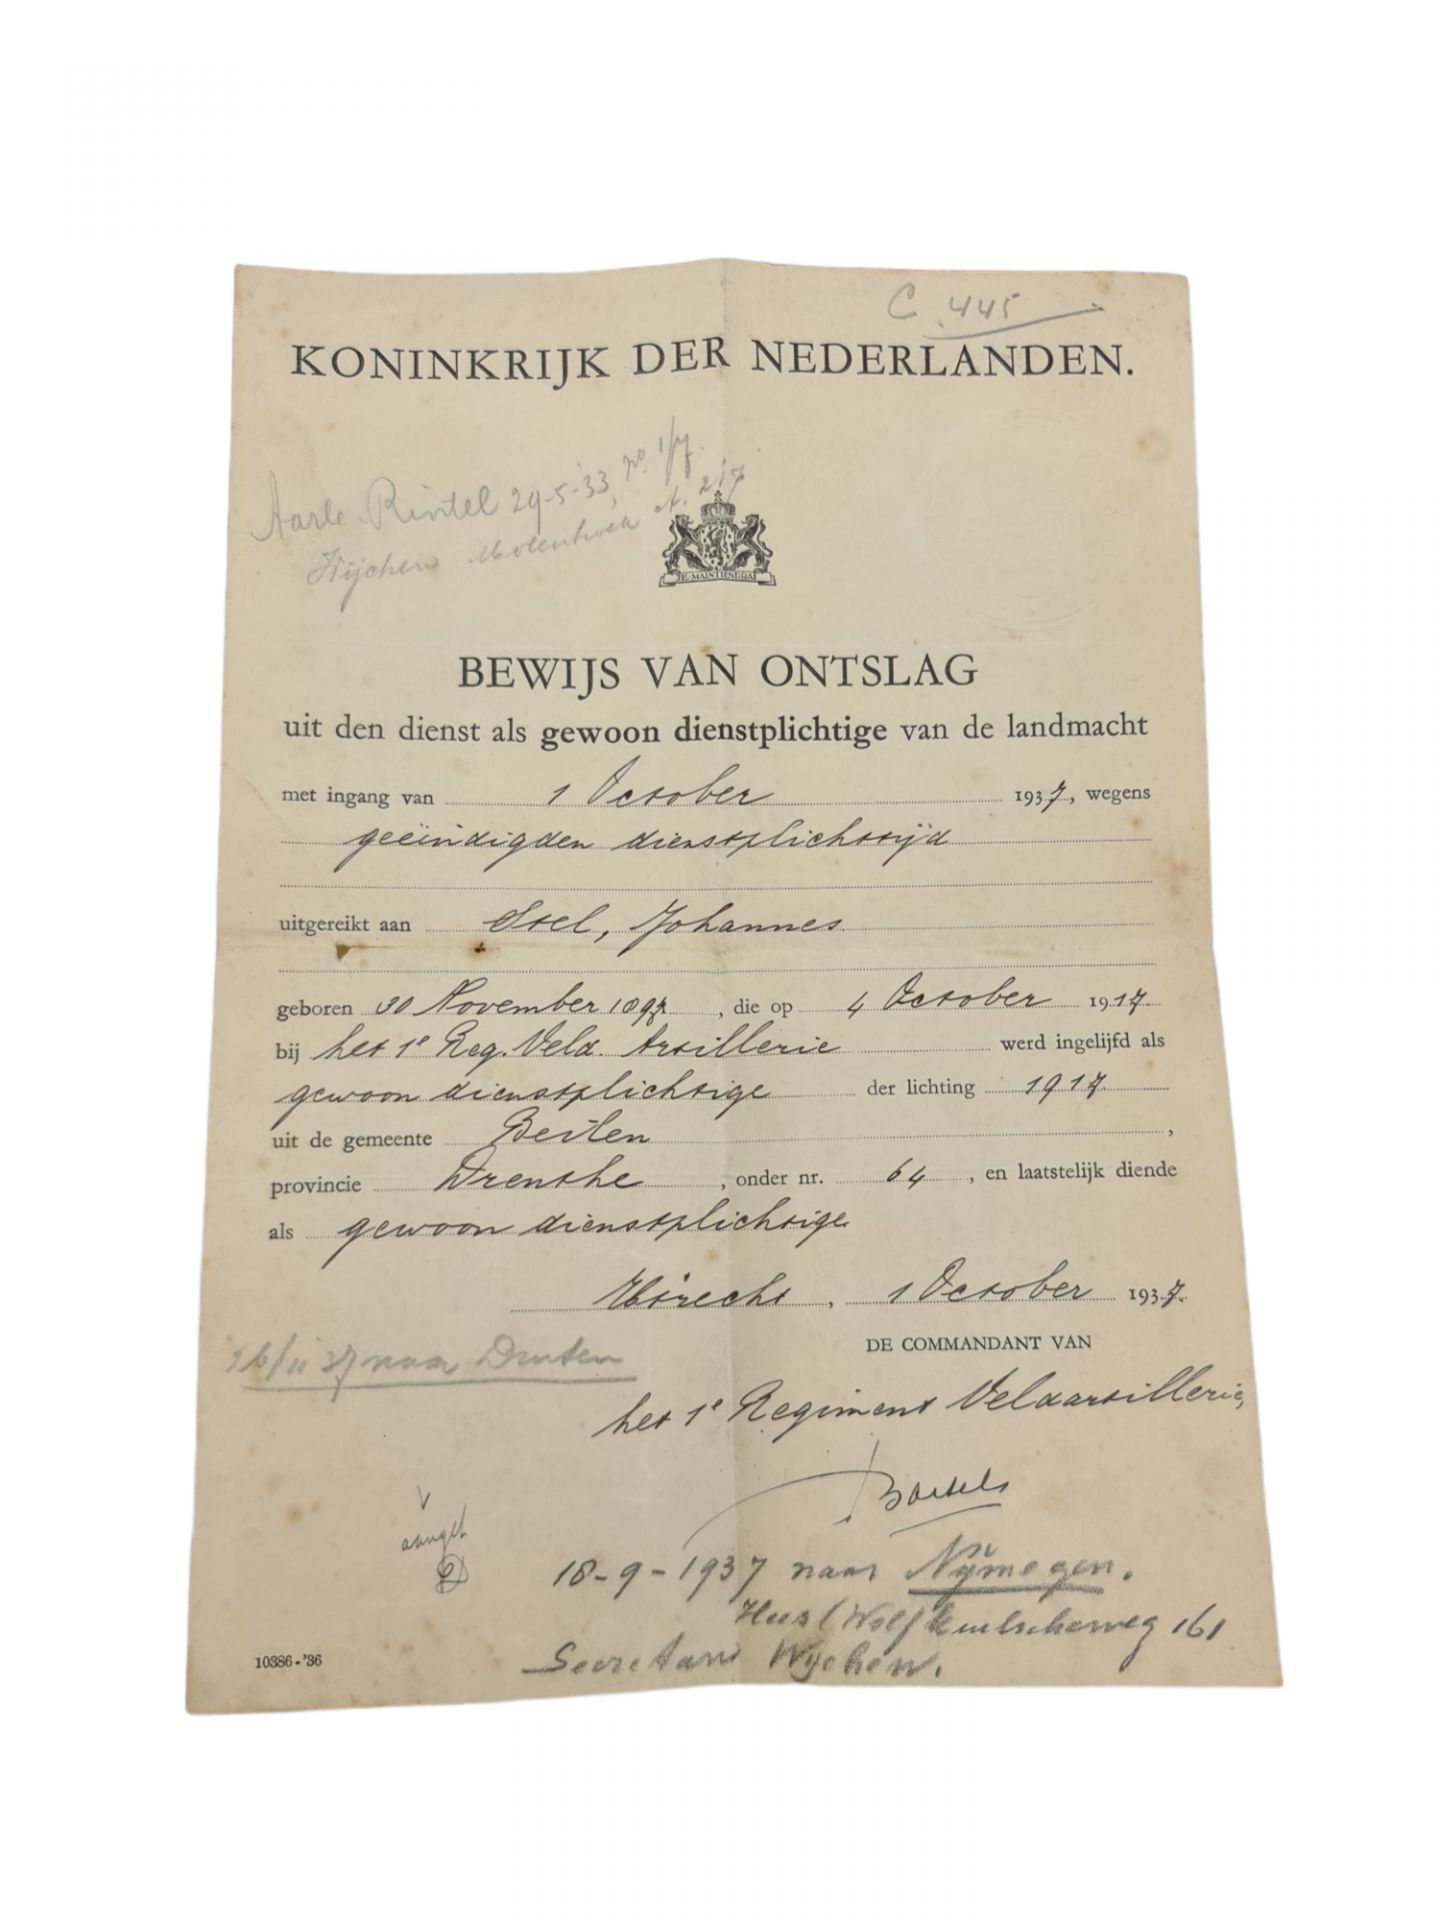 C. 445
KONINKRIJK DER NEDERLANDEN.
Aarle-Rixtel 29-5-'33, no. 1/7.
Wijchen Molenhoek A. 217
JE MAINTIENDRAI
BEWIJS VAN ONTSLAG
uit den dienst als gewoon dienstplichtige van de landmacht
met ingang van 1 October 1937, wegens
geëindigden dienstplichttijd
uitgereikt aan Stel, Johannes
geboren 30 November 1897, die op 4 October 1917
bij het 1e Reg. Veld. Artillerie werd ingelijfd als
gewoon dienstplichtige der lichting 1917
uit de gemeente Beilen,
provincie Drenthe, onder nr. 64, en laatstelijk diende
als gewoon dienstplichtige
Utrecht, 1 October 1937.
DE COMMANDANT VAN
26/11 37 naar Druten
het 1e Regiment Veldartillerie,
18-9-1937 naar Nijmegen.
161
Wychen.
10386-'36